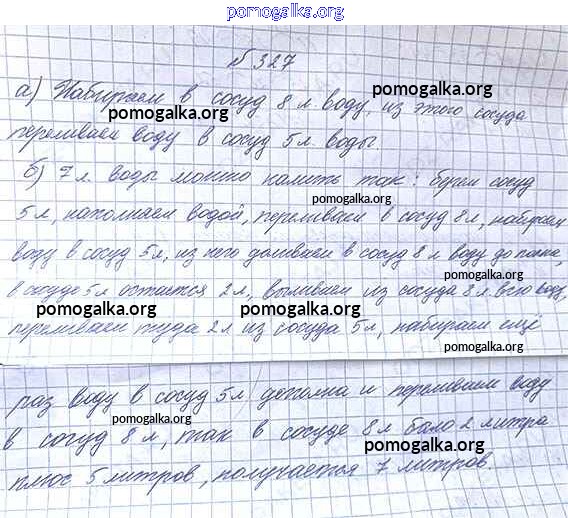 pomogalka.org
№327
а) Набираем в сосуд 8 л воду, из этого сосуда
pomogalka.org
pomogalka.org
переливаем воду в сосуд 5 л. воды.
б) 7 л. воды можно налить так: берем сосуд
pomogalka.org
5 л, наполняем водой, переливаем в сосуд 8 л, набираем
воду в сосуд 5 л, из него доливаем в сосуд 8 л воду до полна,
pomogalka.org
в сосуде 5 л остается 2 л, выливаем из сосуда 8 л всю воду,
pomogalka.org
pomogalka.org
переливаем туда 2 л из сосуда 5 л, набираем ещё
pomogalka.org
раз воду в сосуд 5 л дополна и переливаем воду
pomogalka.org
в сосуд 8 л, так в сосуде 8 л было 2 литра
pomogalka.org
плюс 5 литров, получается 7 литров.